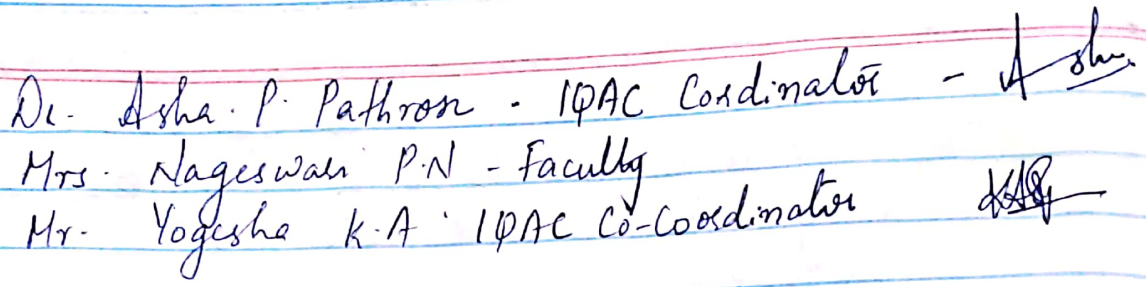 Dr. Asha. P. Pathrose - IQAC Cordinator - Asha
Mrs. Nageswari P.N - Faculty
Mr. Yogesha K.A. IQAC Co-Coordinator